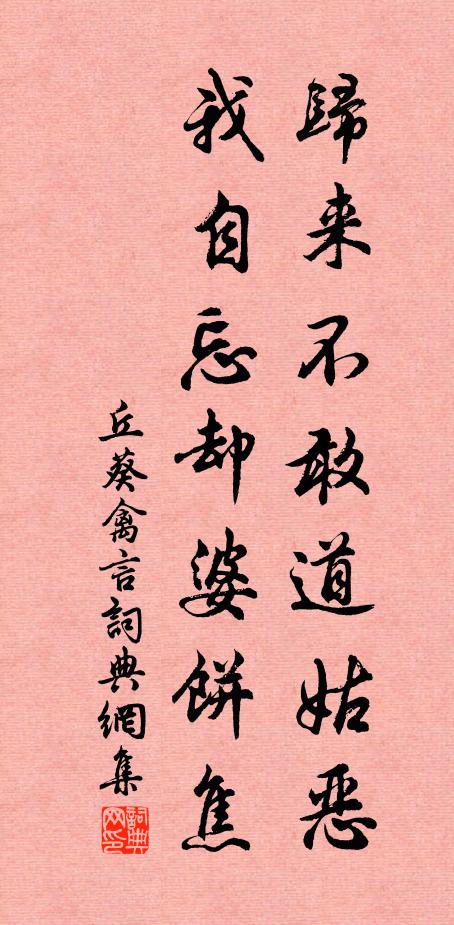 歸来不敢道姑惡
我自忘却婆餅焦
丘葵禽言詞典網集
詞典网印